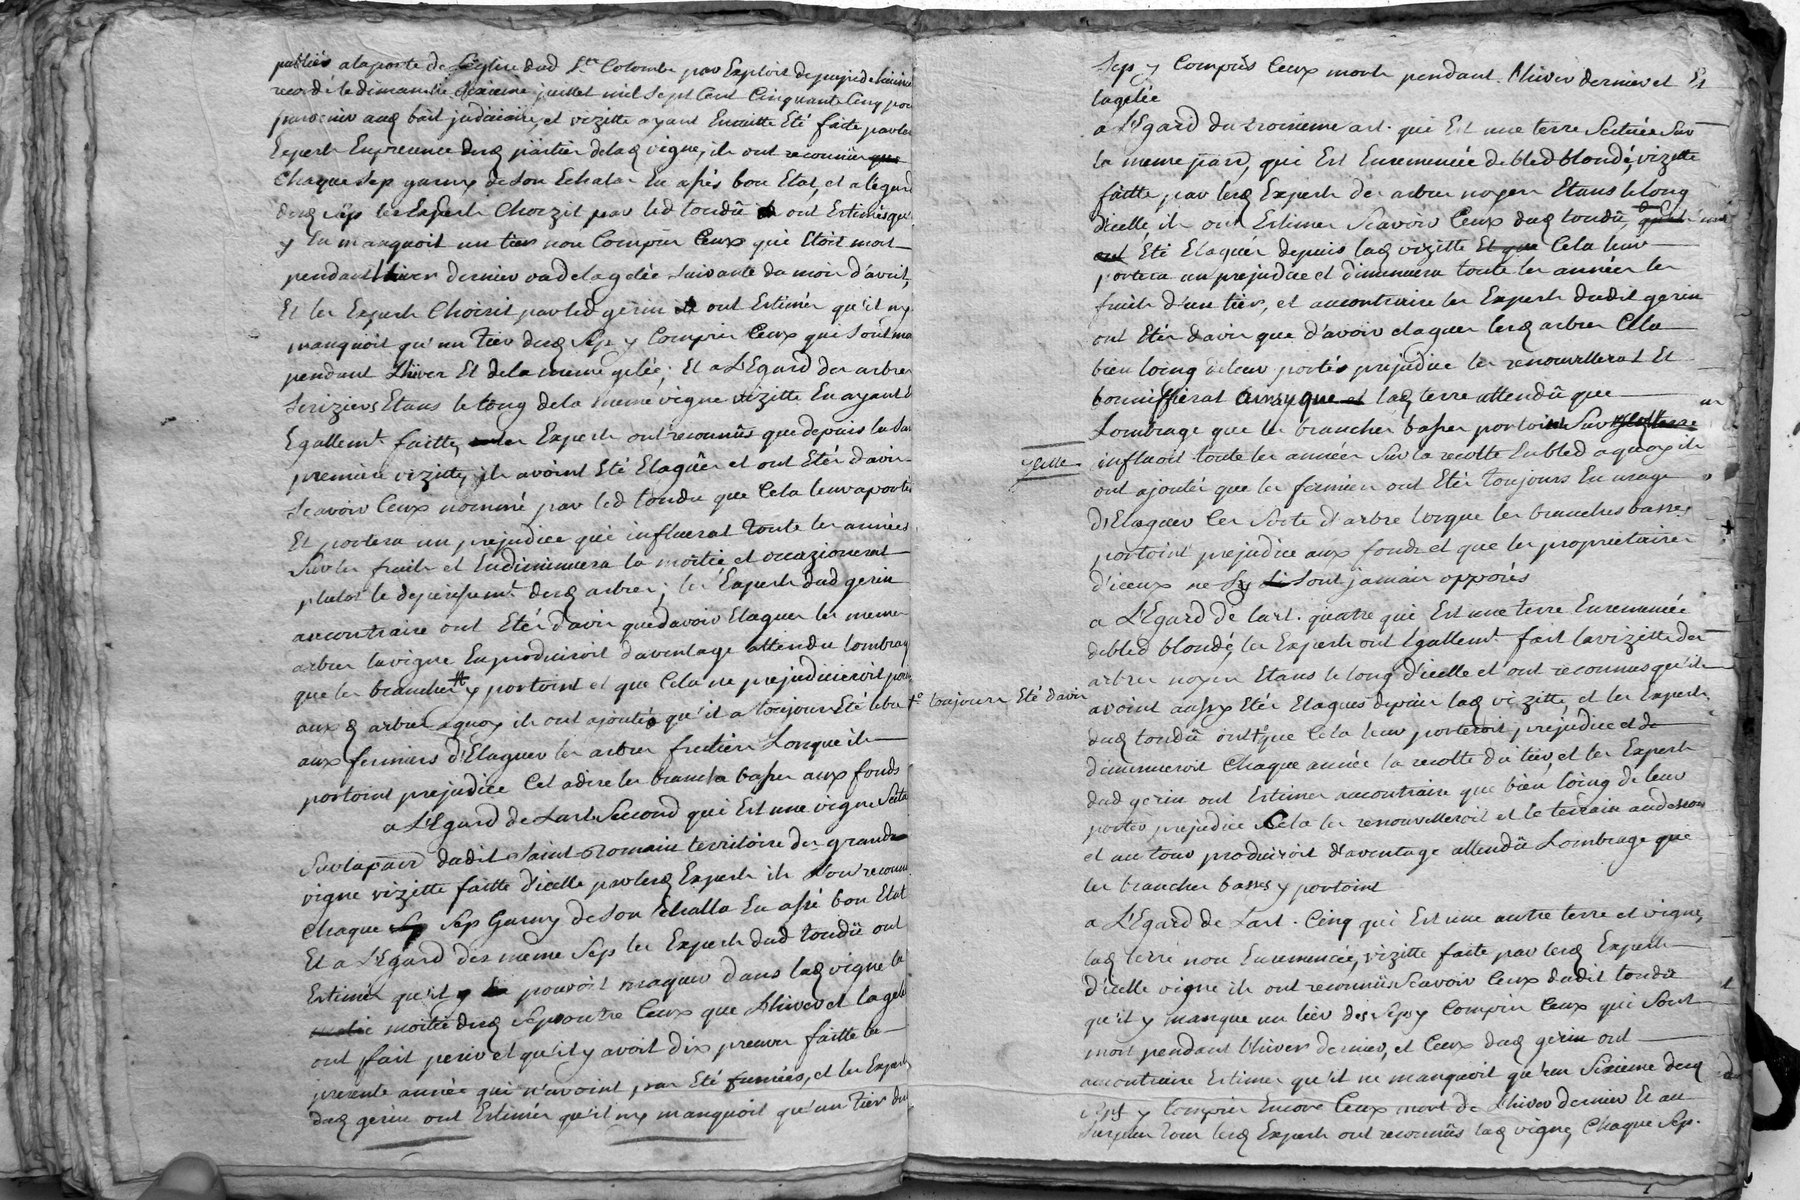 publiés a la porte de Leglise dud Ste Colombe par Exploit de
recordé le dimanche sixieme juillet mil sept Cent Cinquante Cinq pour
parvenir auq bail judiciaire, et vizitte ayant Ensuitte Eté faite par les
Experts En presence desq parties de laq vigne, ils ont reconnües
Chaque sep garny de son Echalat En assés bon Etat, et a legard
desq seps les Experts Choizit par led tondû ont Estimés que
y En manquoit un tier non Compris Ceux qui Etoit mort
pendant hiver dernier ou de la gelée suivante du mois d'avril,
Et les Experts Choisit par led gerin ont Estimés qu'il ny
manquoit qu'un Tier desq Seps y Compris Ceux qui sont mort
pendant L'hiver Et de la meme gelée; Et a L'Egard des arbres
Seriziers Etans le long de la meme vigne vizitte En ayant Eté
Egallemt. faitte, les Experts ont reconnüs que depuis la Sus
premiere vizitte, ils avoint Eté Elaguêr et ont Etés d'avis
Scavoir Ceux nommé par led tondu que Cela leur a porté
Et portera un prejudice qui influerat toute les années
Sur les fruits et En diminuera la moitié et occazionerat
plutot le deperissemt. desq arbres; les Experts dud gerin
aucontraire ont Etés d'avis que d'avoir Elaguer les meme
arbres la vigne En produiroit d'aventage attendu lombrage
que les branches # y portoint et que Cela ne prejudicieroit point
aux q arbres aquoy ils ont ajoutés qu'il a toujour Eté libre
aux fermiers d'Elaguer les arbres fruitiers Lorsque ils
portoint prejudice Cet a dire les branches basses aux fonds
a L'Egard de L'art. Second qui Est une vigne Scitu
Sur la parr dudit Saint Romain territoire des grande
vigne vizitte faitte d'icelle par lesq Experts ils ont reconnu
Chaque Sep Garny de son Echalla En assé bon Etat
Et a L'Egard des meme Seps les Experts dud tondû ont
Estimés qu'il pouvoit maquer dans laq vigne la
moitié desq Seps outre Ceux que L'hiver et la gelé
ont fait perir et qu'il y avoit dix preuves faitte la
presente année qui n'avoint pas Eté fumées, et les Experts
dudq gerin ont Estimés qu'il ny manquoit qu'un Tier des
Sep y Compris Ceux morts pendant L'hiver dernier et Et
la gelée
a L'Egard du troisieme art. qui Est une terre Scituée Sur
la meme parr, qui Est Ensemencée de bled blondé, vizitte
faitte par lesq Experts des arbres noyers Etans le long
d'icelle ils ont Estimer Scavoir Ceux dudq tondû,
Eté Elaguér depuis laq vizitte Cela leur
portera un prejudice et diminuera toute les années les
fruits d'un tier, et aucontraire les Experts dudit gerin
ont Etér d'avis que d'avoir elaguer lesq arbres Cela
bien loing de leur portér prejudice les renouvellerat Et
bonniffierat laq terre attendû que
Lombrage que les branches basses portoint Sur
ycelle
influoit toute les années Sur la recolte En bled a quoy ils
ont ajoutés que les fermiers ont Etér toujours En usage
d'Elaguer Ces Sorte d'arbre lorque les branches basses
portoint prejudice aux fonds et que les proprietaires
d'iceux ne Sy Sont jamais opposés
a L'Egard de l'art. quatre qui Est une terre Ensemencée
de bled blondé, les Experts ont Egallemt. fait la vizitte des
arbres noyers Etans le long d'icelle et ont reconnus qu'ils
avoint aussy Etér Elagués depuis laq vizitte, et les Experts
dudq tondû ont + que Cela leur porteroit prejudice et
+ toujours Eté d'avis
diminueroit Chaque année la recolte du tier, et les Experts
dud gerin ont Estimer aucontraire que bien loing de leur
porter prejudice Cela les renouvelleroit et le terrain audessous
et au tour produiroit d'aventage attendû Lombrage que
les branches basses y portoint
a L'Egard de L'art. Cinq qui Est une autre terre et vigne,
laq terre non Ensemencée, vizitte faite par lesq Experts
d'icelle vigne ils ont reconnüs Scavoir Ceux dudit tondû
qu'il y manque un tier des Seps y Compris Ceux qui Sont
mort pendant L'hiver dernier, et Ceux dudq gerin ont
aucontraire Estimer qu'il ne manquoit qu'un Sixieme desq
Seps y Compris Encore Ceux mort de L'hiver dernier Et au
Surplus tous lesq Experts ont reconnûs laq vigne, Chaque Sep.